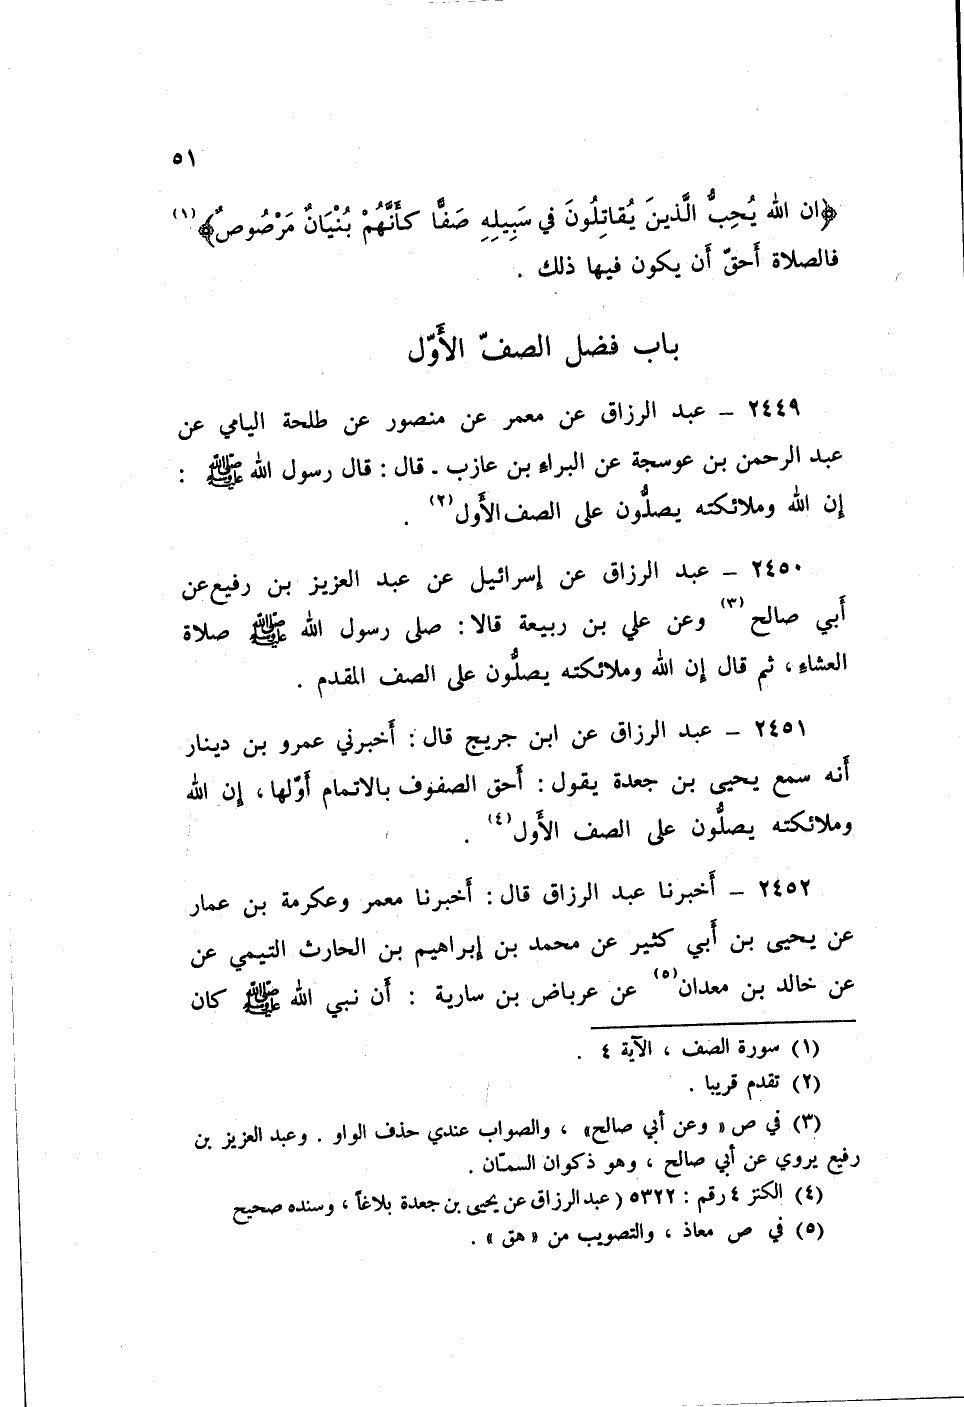 ٥١
﴿ان الله يُحِبُّ الَّذينَ يُقاتِلُونَ في سَبِيلِهِ صَفًّا كَأَنَّهُمْ بُنْيَانٌ مَرْصُوصٌ﴾(١)
فالصلاة أَحقّ أَن يكون فيها ذلك .
باب فضل الصفّ الأَوّل
٢٤٤٩ – عبد الرزاق عن معمر عن منصور عن طلحة اليامي عن
عبد الرحمن بن عوسجة عن البراء بن عازب ـ قال : قال رسول الله ﷺ :
إن الله وملائكته يصلُّون على الصف الأَول(٢) .
٢٤٥٠ – عبد الرزاق عن إسرائيل عن عبد العزيز بن رفيع عن
أَبي صالح(٣) وعن علي بن ربيعة قالا : صلى رسول الله ﷺ صلاة
العشاء ، ثم قال إن الله وملائكته يصلُّون على الصف المقدم .
٢٤٥١ – عبد الرزاق عن ابن جريج قال : أَخبرني عمرو بن دينار
أَنه سمع يحيى بن جعدة يقول : أَحق الصفوف بالاتمام أَوّلها ، إن الله
وملائكته يصلُّون على الصف الأَول(٤) .
٢٤٥٢ – أَخبرنا عبد الرزاق قال : أَخبرنا معمر وعكرمة بن عمار
عن يحيى بن أَبي كثير عن محمد بن إبراهيم بن الحارث التيمي عن
عن خالد بن معدان(٥) عن عرباض بن سارية : أَن نبي الله ﷺ كان
(١) سورة الصف ، الآية ٤ .
(٢) تقدم قريبا .
(٣) في ص « وعن أبي صالح» ، والصواب عندي حذف الواو . وعبد العزيز بن
رفيع يروي عن أبي صالح ، وهو ذكوان السمّان .
(٤) الكنز ٤ رقم : ٥٣٢٢ ( عبد الرزاق عن يحيى بن جعدة بلاغاً ، وسنده صحيح
(٥) في ص معاذ ، والتصويب من « هق » .